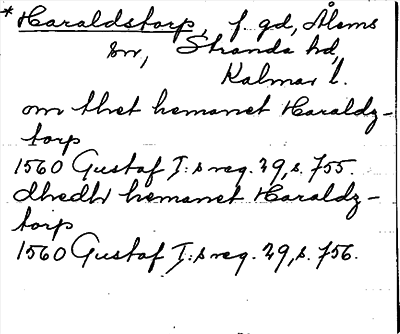 * Haraldstorp, f. gd, Ålems
sn, Stranda hd,
Kalmar l.
om thet hemanet Haraldz-
torp
1560 Gustaf I:s reg. 29, s. 755.
dhedh hemanet Haraldz-
torp
1560 Gustaf I:s reg. 29, s. 756.